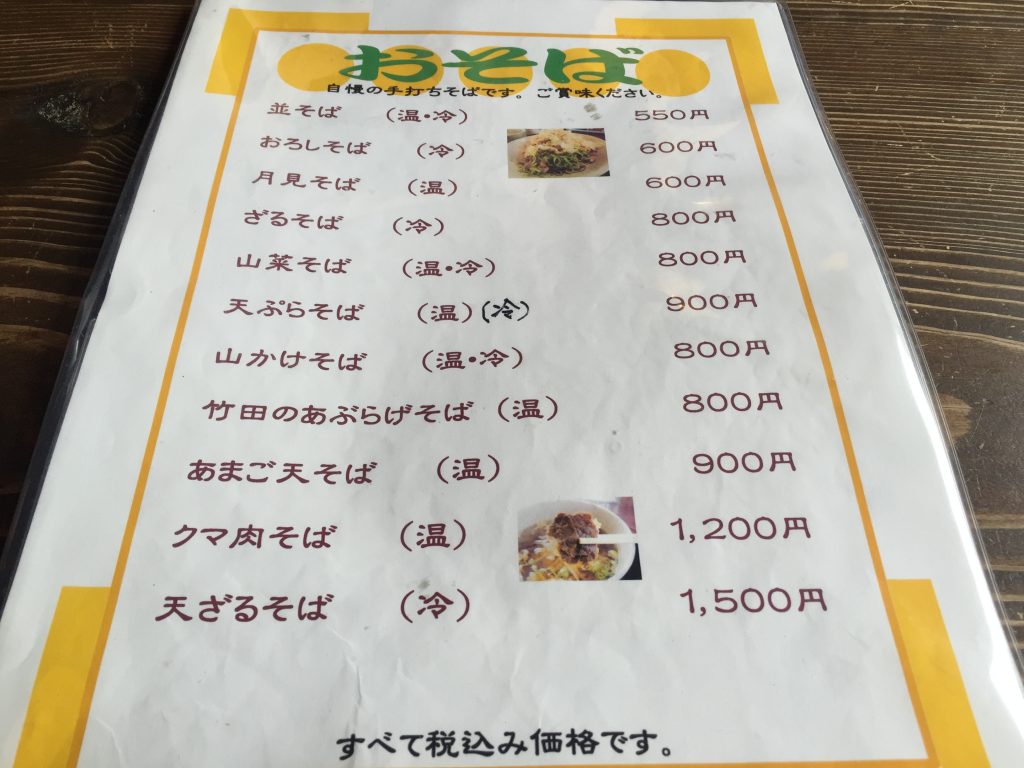 おそば
自慢の手打ちそばです。ご賞味ください。
並そば (温・冷) 550円
おろしそば (冷) 600円
月見そば (温) 600円
ざるそば (冷) 800円
山菜そば (温・冷) 800円
天ぷらそば (温) (冷) 900円
山かけそば (温・冷) 800円
竹田のあぶらげそば (温) 800円
あまご天そば (温) 900円
クマ肉そば (温) 1,200円
天ざるそば (冷) 1,500円
すべて税込み価格です。